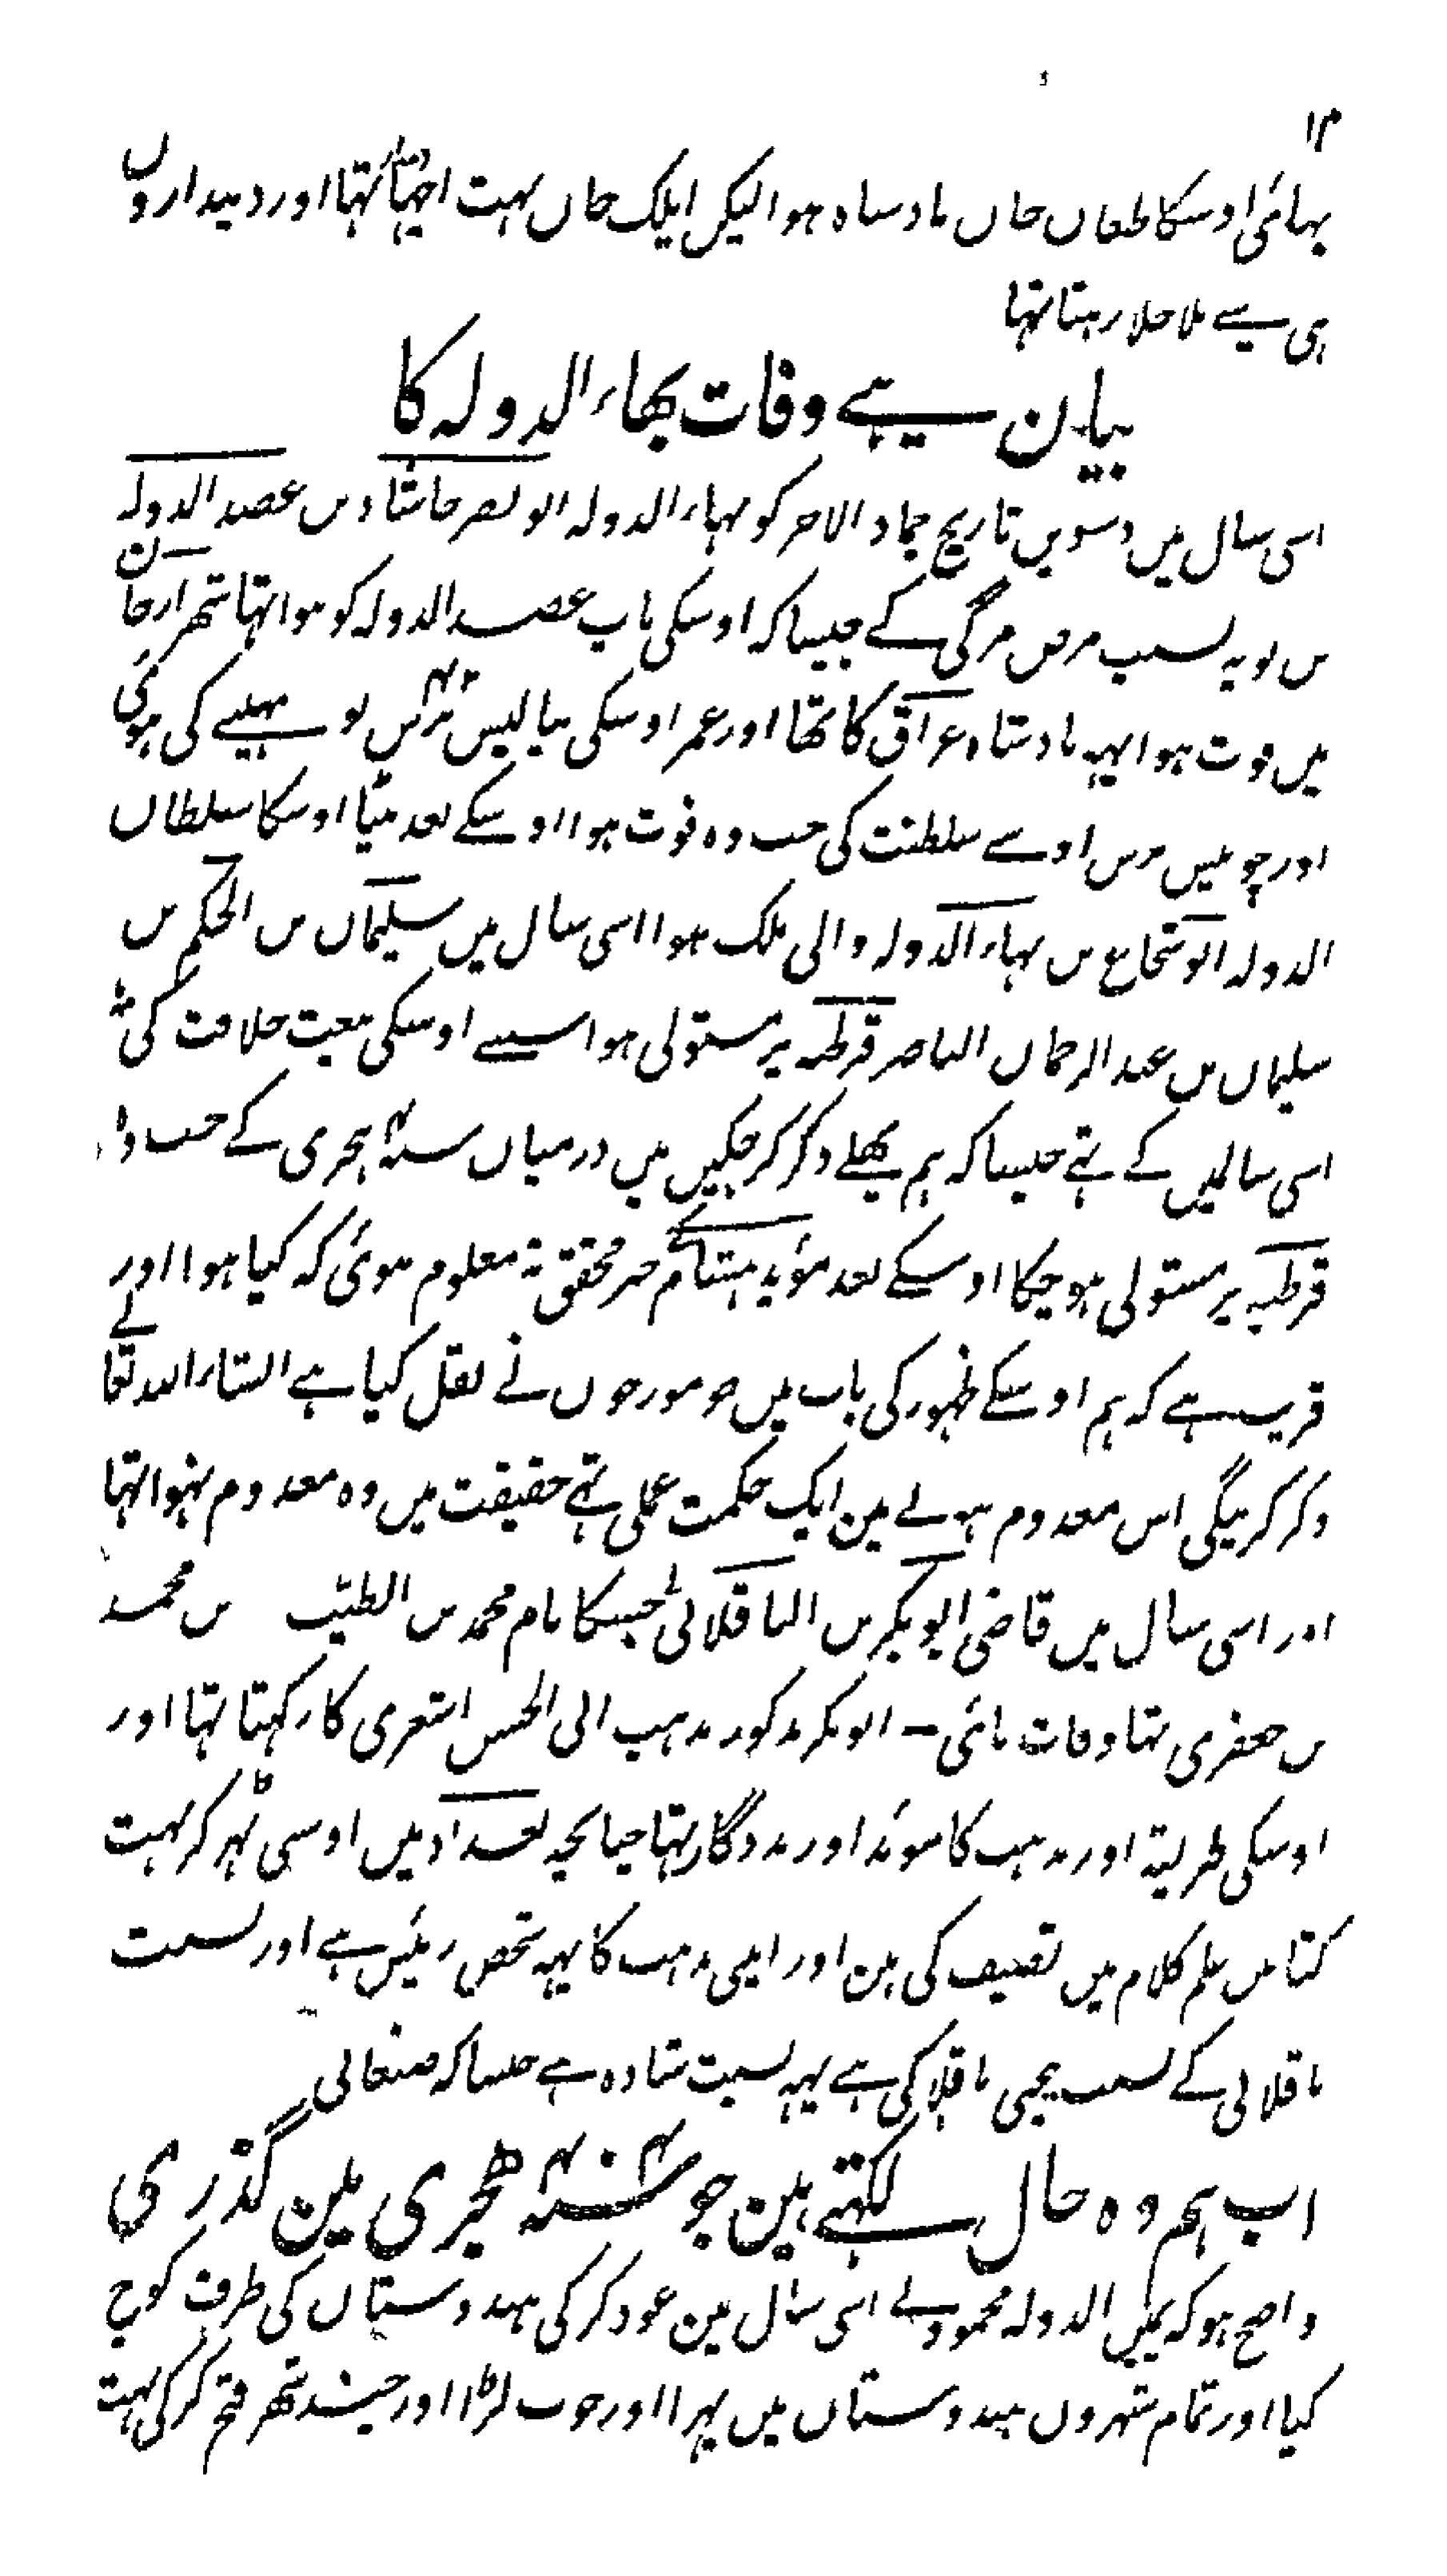 ۱۴
بہائی اوسکا طغان خان بادشاہ ہوا لیکن ایلک خان بہت اچہا تہا اور دیندارون
ہی سے ملا جلا رہتا تہا
بیان ہے وفات بھاء الدولہ کا
اسی سال میں دسویں تاریخ جماد الاخر کو بہاء الدولہ ابو نصر خاشاد بن عضد الدولہ
بن بویہ بسبب مرض مرگی کے جیسا کہ اوسکی باپ عضد الدولہ کو ہوا تہا شہر ارجان
میں فوت ہوا یہہ بادشاہ عراق کا تھا اور عمر اوسکی بیالیس ۴۲ برس نو مہینے کی ہوئی
اور چوبیس برس اوسے سلطنت کی جب وہ فوت ہوا اوسکے بعد بیٹا اوسکا سلطان
الدولہ ابو شجاع بن بہاء الدولہ والی ملک ہوا اسی سال میں سلیمان بن الحکم بن
سلیمان بن عبد الرحمان الناصر قرطبہ پر مستولی ہوا سبے اوسکی بیعت خلافت کی
اسی سالمیں کے تہے جیسا کہ ہم پہلے ذکر کر چکیں ہیں درمیان سنہ ہجری کے جب وہ
قرطبہ پر مستولی ہو چکا اوسکے بعد مؤید ہشام کے خبر محقق نہ معلوم ہوئی کہ کیا ہوا اور
قریب ہے کہ ہم اوسکے ظہور کی باب میں جو مورخوں نے نقل کیا ہے انشاء اللہ تعالے
ذکر کرینگی اس معدوم ہونے مین ایک حکمت عملی تہے حقیقت میں وہ معدوم نہوا تہا
اور اسی سال میں قاضی ابو بکر بن الباقلانی جسکا نام محمد بن الطیب بن محمد
بن جعفری تہا وفات پائی - ابو بکر مذکور مذہب ابی الحسن اشعری کا رکہتا تہا اور
اوسکی طریقہ اور مذہب کا موئد اور مددگار تہا چنانچہ بغداد میں اوسی ٹہر کر بہت
کتابیں علم کلام میں تصنیف کی ہین اور ایسی مذہب کا یہہ شخص رئیس ہے اور نسبت
باقلانی کے نسبت بیچی باقلا کی ہے یہہ نسبت شادہ ہے جیسا کہ صنعانی
اب ہم وہ حال لکہتے ہین جو سنہ ۴۰۴ ھجری مین گذری
واضح ہو کہ یمین الدولہ محمود نے اسی سال مین عود کر کی ہندوستان کی طرف کوچ
کیا اور تمام شہروں ہندوستان میں پہرا اور خوب لڑا اور چند شہر فتح کر کی بہت